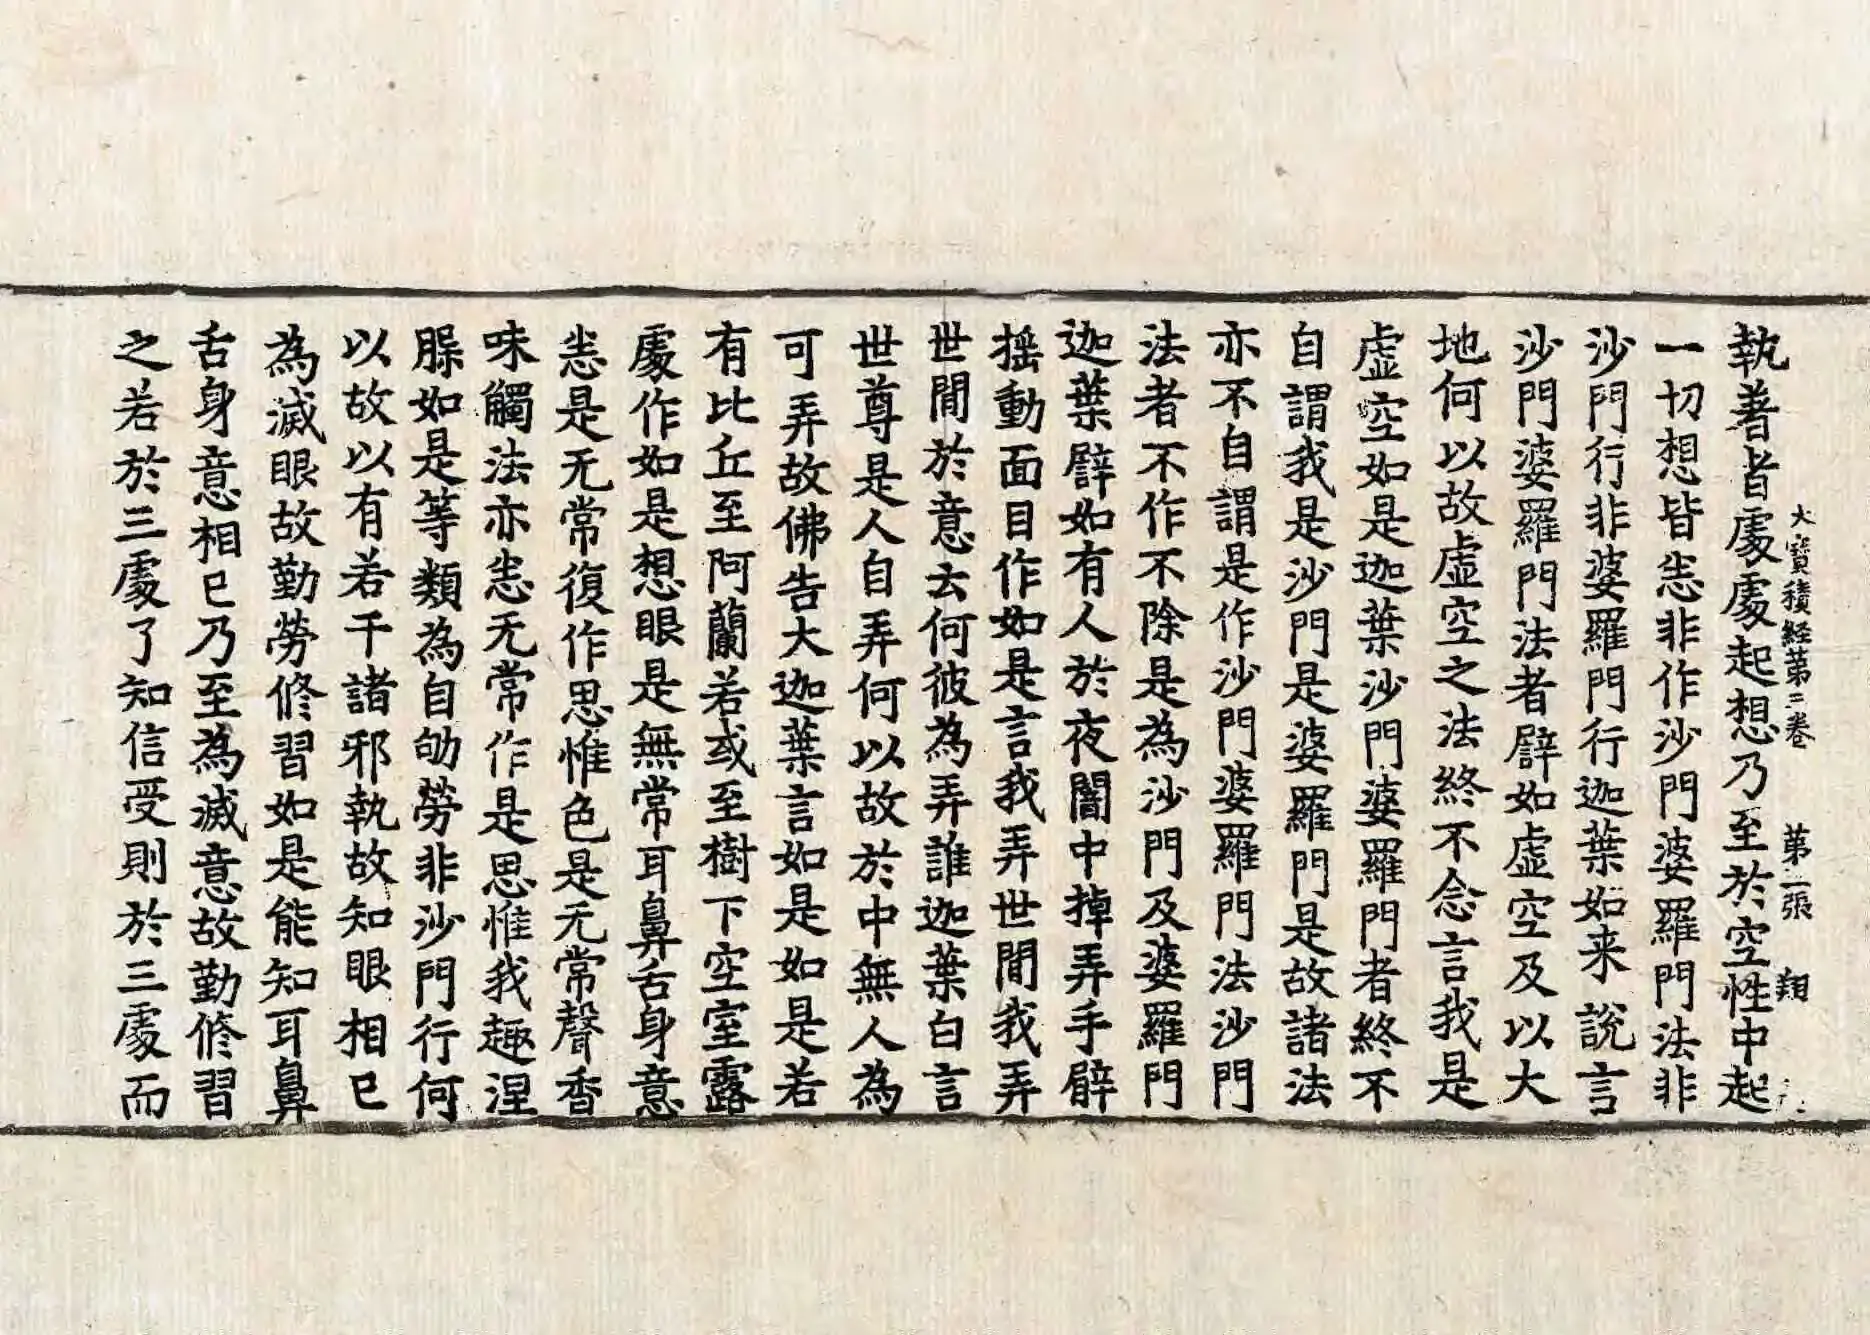 大寶積經第三卷 第二張 翔
執著者處處起想乃至於空性中起
一切想皆悲非作沙門婆羅門法非
沙門行非婆羅門行迦葉如来說言
沙門婆羅門法者譬如虛空及以大
地何以故虛空之法終不念言我是
虛空如是迦葉沙門婆羅門者終不
自謂我是沙門是婆羅門是故諸法
亦不自謂是作沙門婆羅門法沙門
法者不作不除是為沙門及婆羅門
迦葉譬如有人於夜闇中掉弄手臂
揺動面目作如是言我弄世間我弄
世間於意云何彼為弄誰迦葉白言
世尊是人自弄何以故於中無人為
可弄故佛告大迦葉言如是如是若
有比丘至阿蘭若或至樹下空室露
處作如是想眼是無常耳鼻舌身意
悲是无常復作思惟色是无常聲香
味觸法亦悲无常作是思惟我趣涅
臊如是等類為自劬勞非沙門行何
以故以有若干諸邪執故知眼相已
為滅眼故勤勞修習如是能知耳鼻
舌身意相已乃至為滅意故勤修習
之若於三處了知信受則於三處而